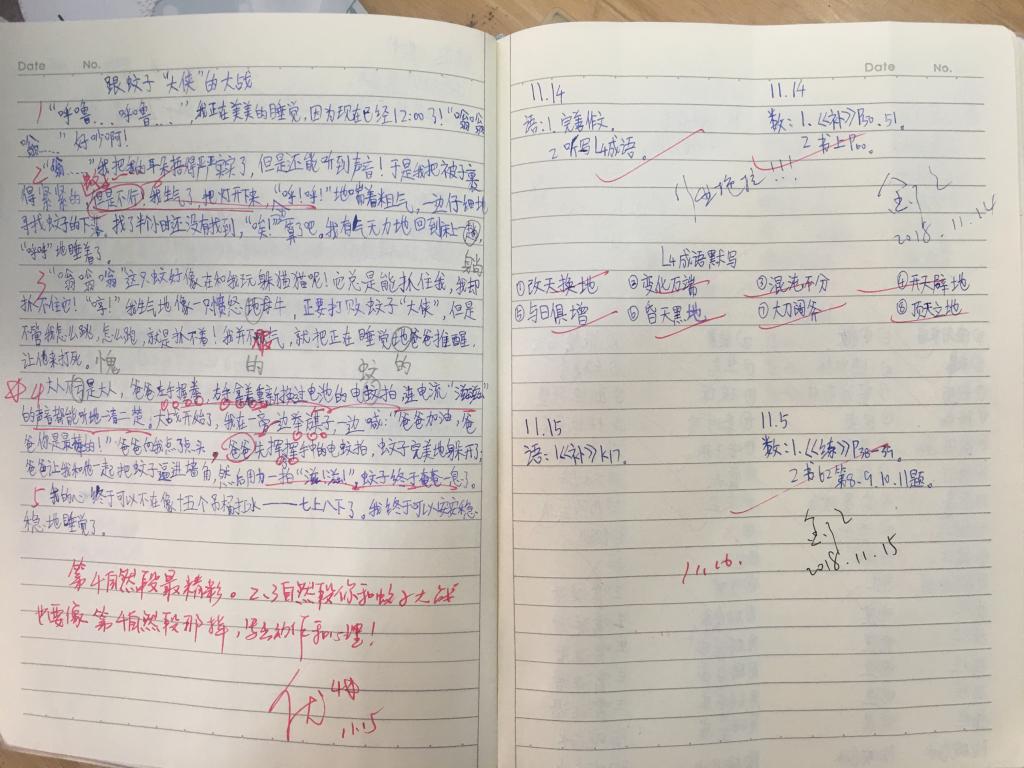 Date No.
跟蚊子"大侠"的大战
1 "呼噜……呼噜……",我正在美美的睡觉,因为现在已经12:00了!"嗡嗡
嗡……"好吵啊!
2 "嗡……"我把耳朵捂得严严实实了,但是还能听到声音!于是我把被子裹
得紧紧的,但是不行!我生气了,把灯打开来,"呼!呼!"地喘着粗气,一边仔细地
寻找蚊子的下落。找了半小时还没有找到,"唉!"算了吧。我有气无力地回到床上躺,
"呼呼"地睡着了。
躺
3 "嗡嗡嗡"这只蚊好像在和我玩躲猫猫呢!它总是能抓住我,我却
抓不住它!"哼!"我生气地像一只愤怒地母牛,正要打败蚊子"大侠",但是
不管我怎么跳,怎么跑,就是抓不着!我气,就把正在睡觉地爸爸推醒,
让他来打死。愧 的 蚊 的
4 大人不愧是大人,爸爸左手握拳,右手拿着重新换过电池的电蚊拍,连电流"滋滋"
的声音都能听地一清二楚。大战开始了,我在一旁一边举旗子,一边喊:"爸爸加油,爸
爸你是最棒的!"爸爸向我点点头,爸爸先挥挥手中的电蚊拍,蚊子完美地躲开;
爸爸让我和他一起把蚊子逼进墙角,然后用力一拍"滋!滋!",蚊子终于奄奄一息了。
5 我的心终于可以不在像十五个吊桶打水——七上八下了。我终于可以安安稳
稳地睡觉了。
第4自然段最精彩。2、3自然段你和蚊子大战
也要像第4自然段那样,写出动作和心理!
优 4
11.15
Date No.
11.14 11.14
语:1.完善作文。 数:1.《补》P50.51。
2.听写L4成语。 2.书上P60。
2018.11.14
L4成语默写
①改天换地 ②变化万端 ③混沌不分 ④开天辟地
⑤与日俱增 ⑥昏天黑地 ⑦大刀阔斧 ⑧顶天立地
11.15 11.5
语:1《补》K17。 数:1.《练》P30-31。
2.书62第8.9.10.11题。
2018.11.15
11.16.